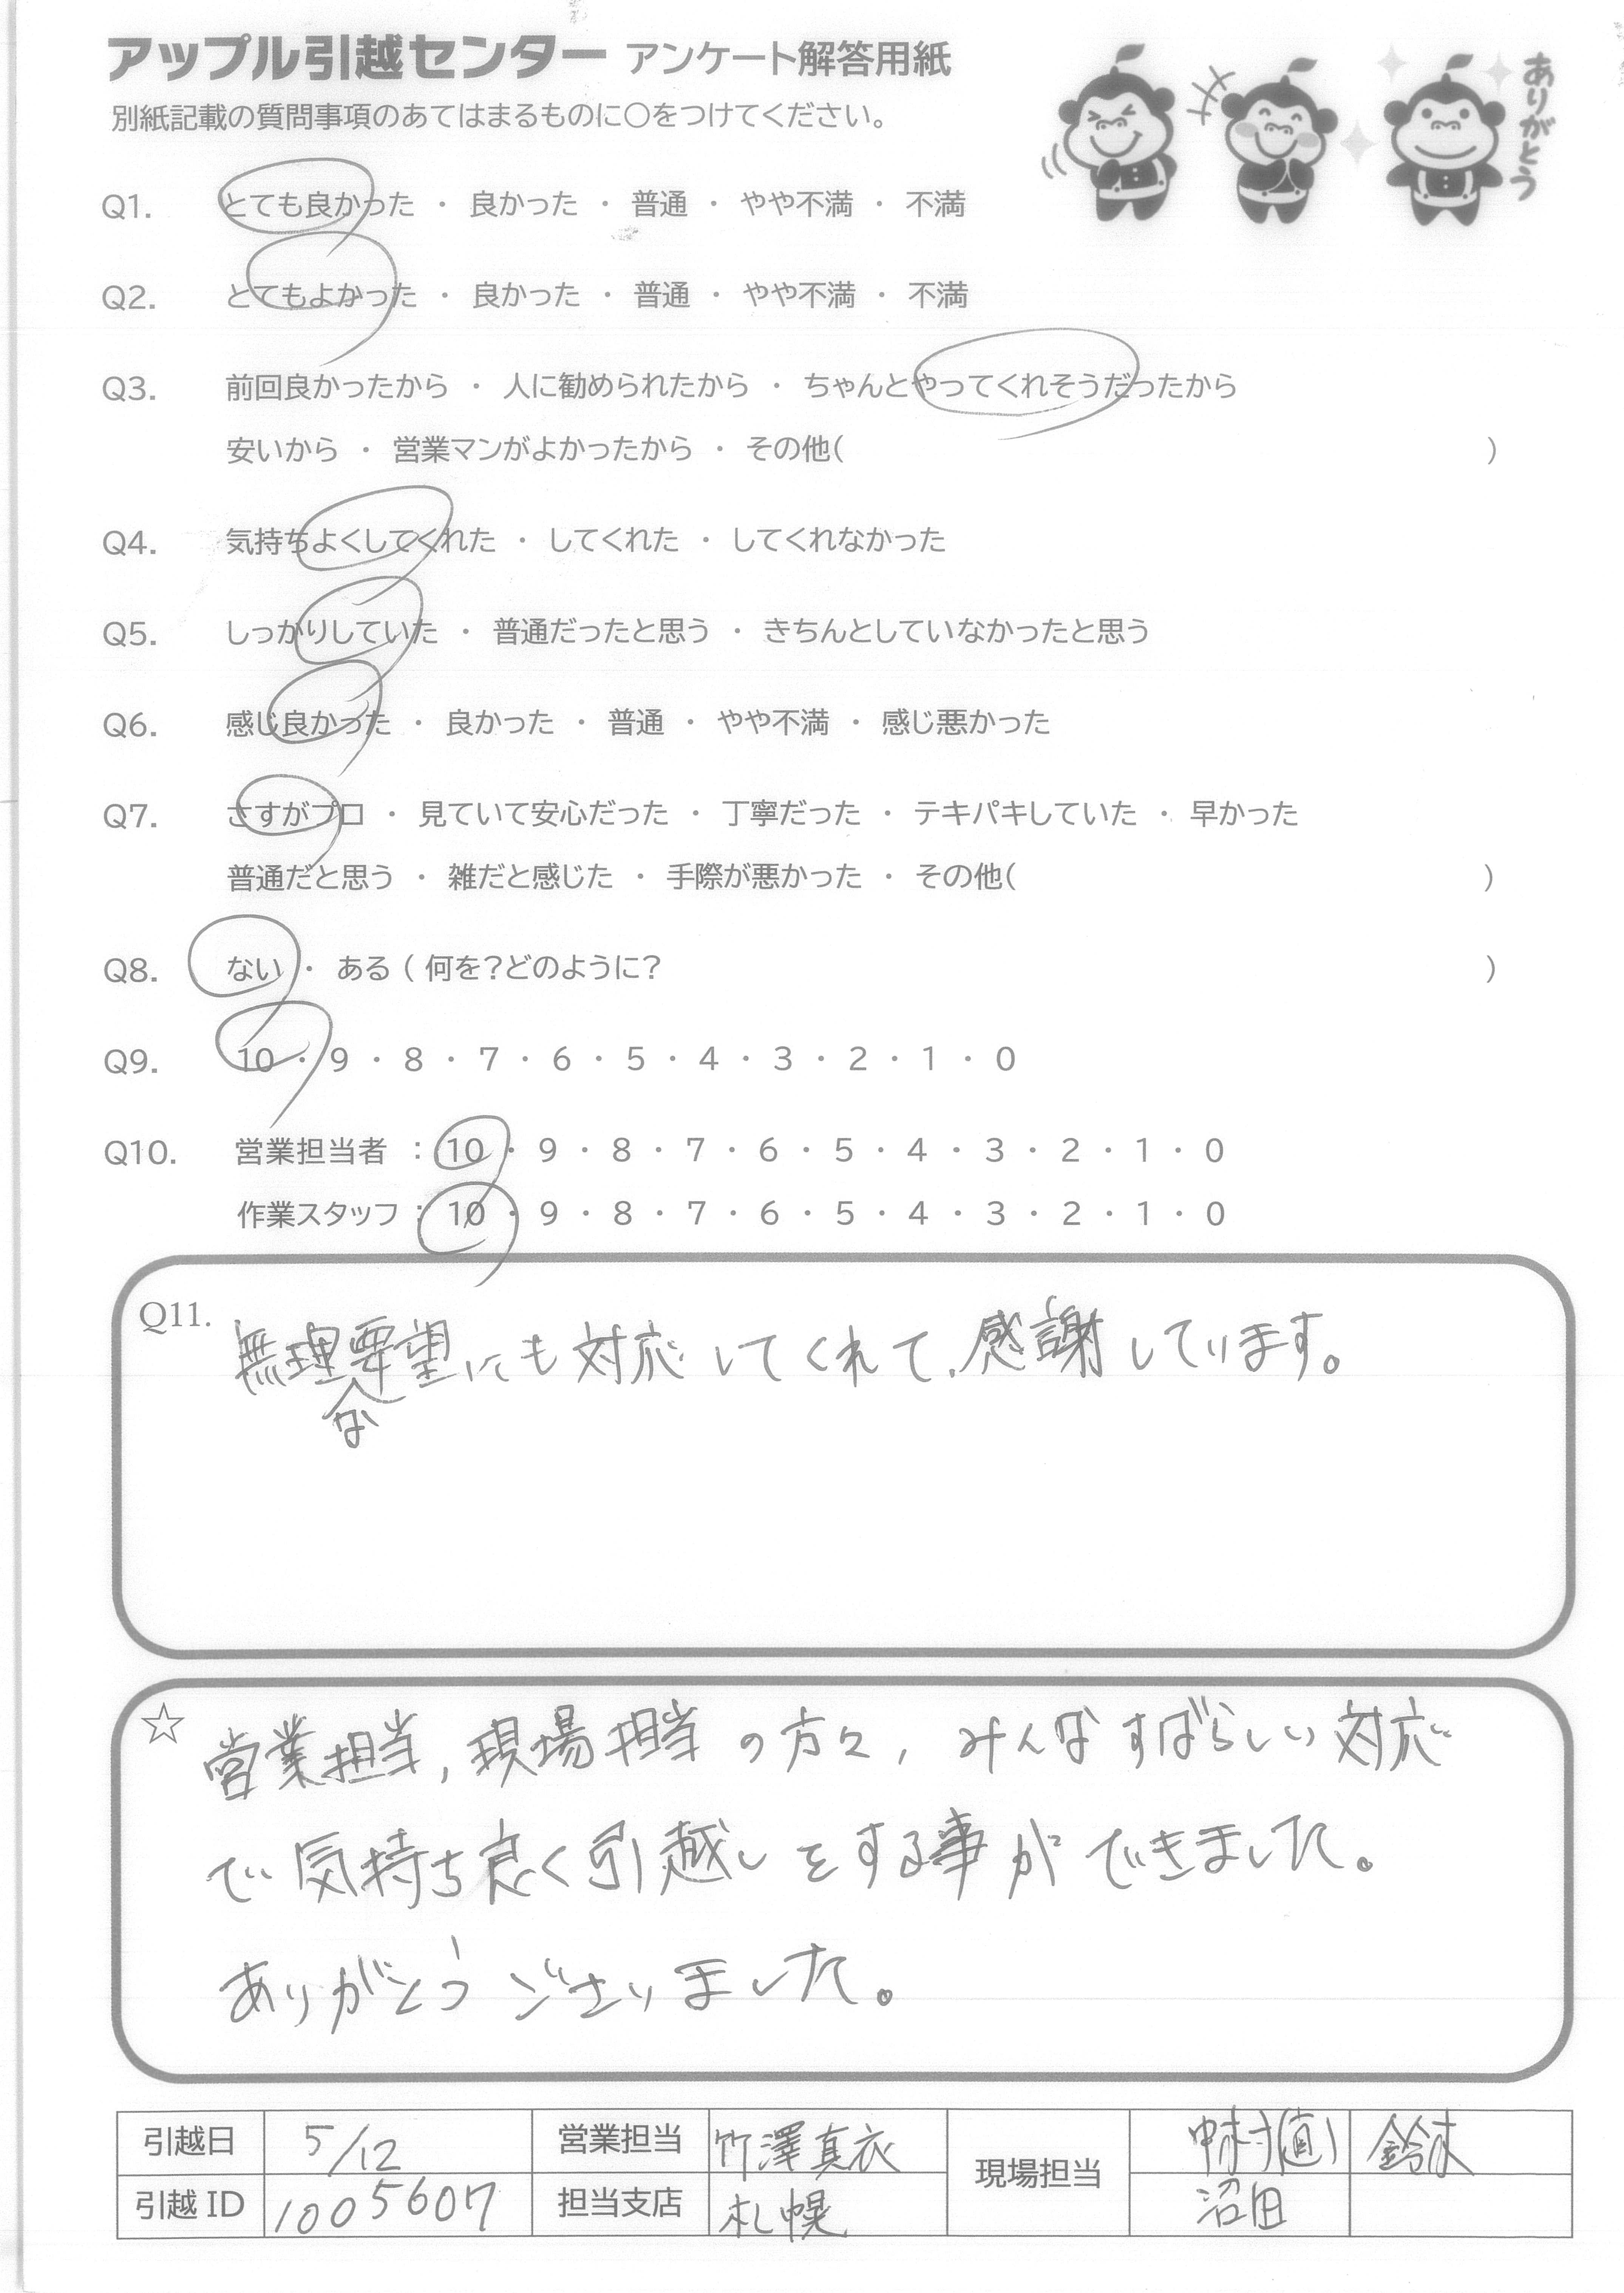 アップル引越センター アンケート解答用紙
別紙記載の質問事項のあてはまるものに○をつけてください。
ありがとう
Q1. とても良かった ・ 良かった ・ 普通 ・ やや不満 ・ 不満
Q2. とてもよかった ・ 良かった ・ 普通 ・ やや不満 ・ 不満
Q3. 前回良かったから ・ 人に勧められたから ・ ちゃんとやってくれそうだったから
安いから ・ 営業マンがよかったから ・ その他( )
Q4. 気持ちよくしてくれた ・ してくれた ・ してくれなかった
Q5. しっかりしていた ・ 普通だったと思う ・ きちんとしていなかったと思う
Q6. 感じ良かった ・ 良かった ・ 普通 ・ やや不満 ・ 感じ悪かった
Q7. さすがプロ ・ 見ていて安心だった ・ 丁寧だった ・ テキパキしていた ・ 早かった
普通だと思う ・ 雑だと感じた ・ 手際が悪かった ・ その他( )
Q8. ない ・ ある ( 何を?どのように? )
Q9. 10 ・ 9 ・ 8 ・ 7 ・ 6 ・ 5 ・ 4 ・ 3 ・ 2 ・ 1 ・ 0
Q10. 営業担当者 : 10 ・ 9 ・ 8 ・ 7 ・ 6 ・ 5 ・ 4 ・ 3 ・ 2 ・ 1 ・ 0
作業スタッフ : 10 ・ 9 ・ 8 ・ 7 ・ 6 ・ 5 ・ 4 ・ 3 ・ 2 ・ 1 ・ 0
Q11. 無理な要望にも対応してくれて、感謝しています。
☆ 営業担当, 現場担当の方々, みんなすばらしい対応
で気持ち良く引越しをする事ができました。
ありがとうございました。
引越日 5/12 営業担当 竹澤真衣 現場担当 中村(直) 鈴木
引越ID 1005607 担当支店 札幌 沼田